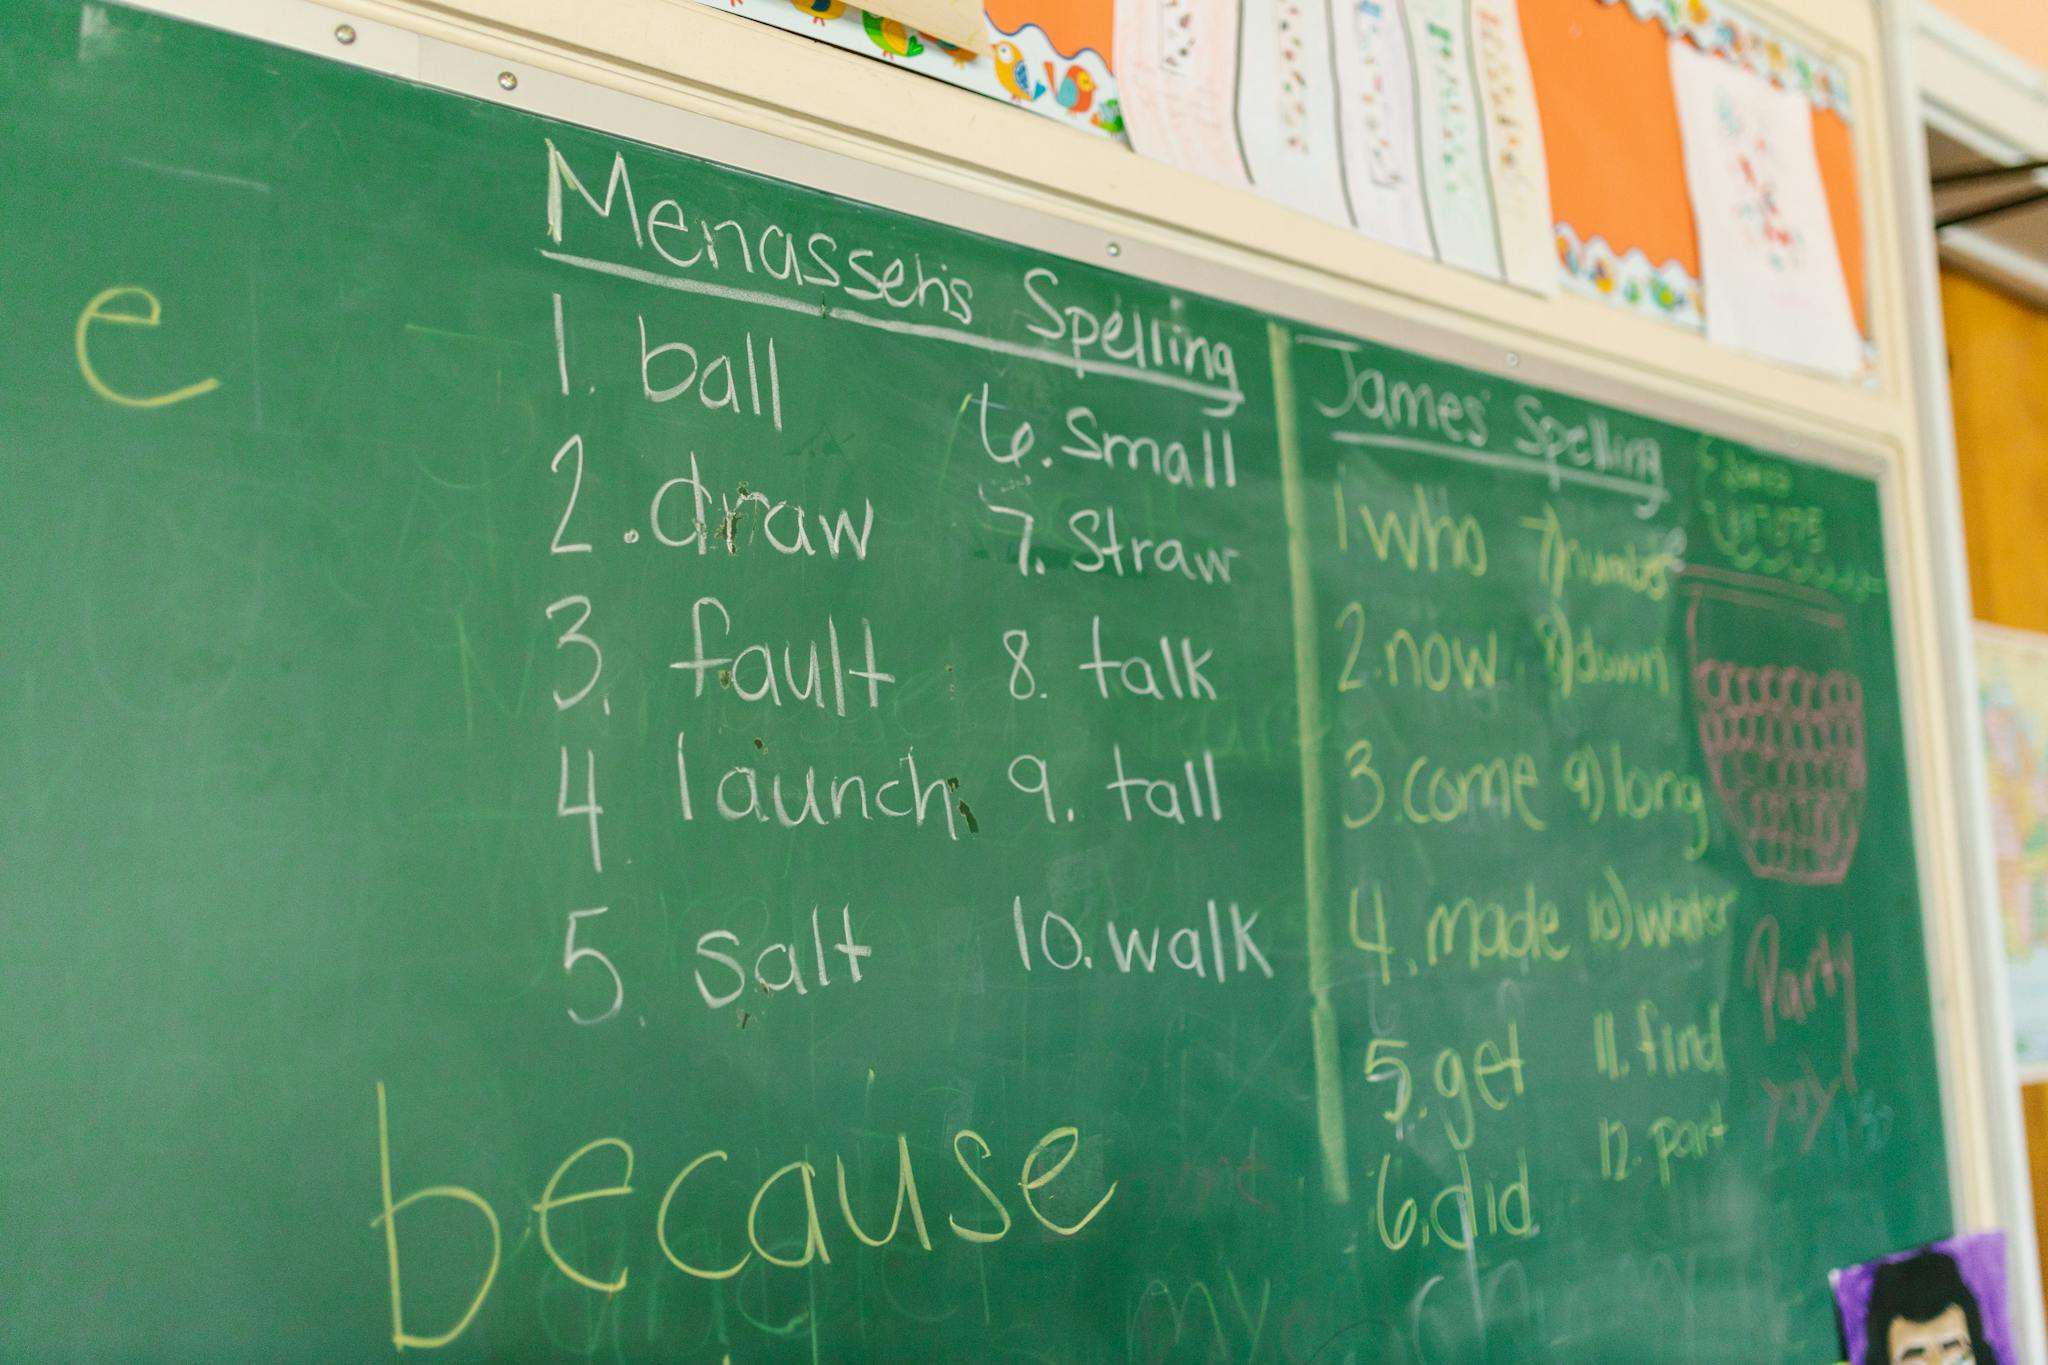 e
Menasseh's Spelling
1. ball
2. draw
3. fault
4 launch
5. salt
6. small
7. straw
8. talk
9. tall
10. walk
because
James' Spelling
1. who
2. now
3. come
4. made
5. get
6. did
7) number
8) down
9) long
10) water
11. find
12. part
Party
yay!